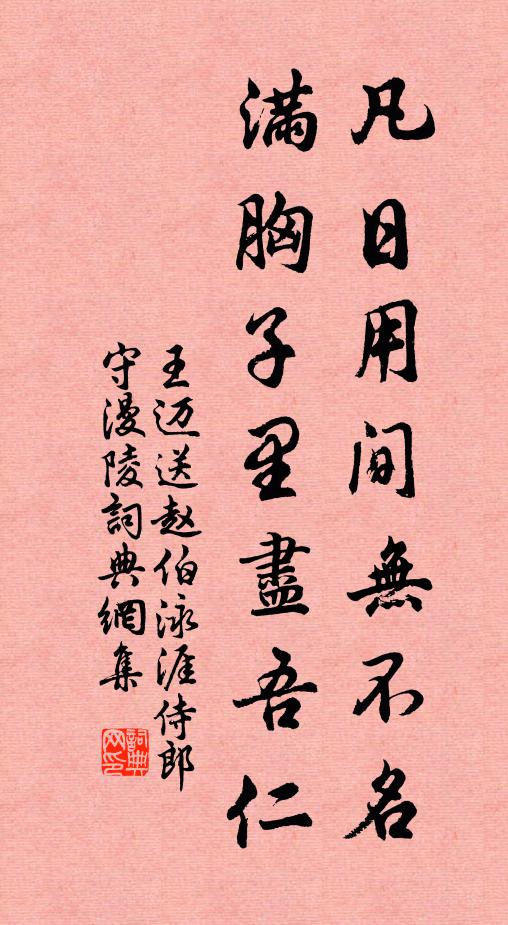 凡日用間無不名
滿胸子里盡吾仁
王迈送赵伯泳涯侍郎
守漫陵詞典網集
詞典网印